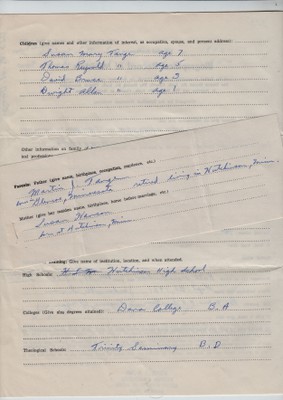 Children (give names and other information of interest, as occupation, spouse, and present address):
Susan Mary Tange age 7
Thomas " age 5
David Bruce " age 3
Dwight Allen " age 1
Other information on family
Parents: Father (give name, birthplace, occupation, residence, etc.)
Martin J. Tangen
Minnesota retired living in Hutchinson, Minn.
Mother (give her maiden name, birthplace, home before marriage, etc.)
Susan Hanson
born at Hutchinson, Minn
Give name of institution, location, and when attended
High School: Hutchinson High School
Colleges (Give also degrees attained): Dana College B.A
Theological Schools: Trinity Seminary B.D